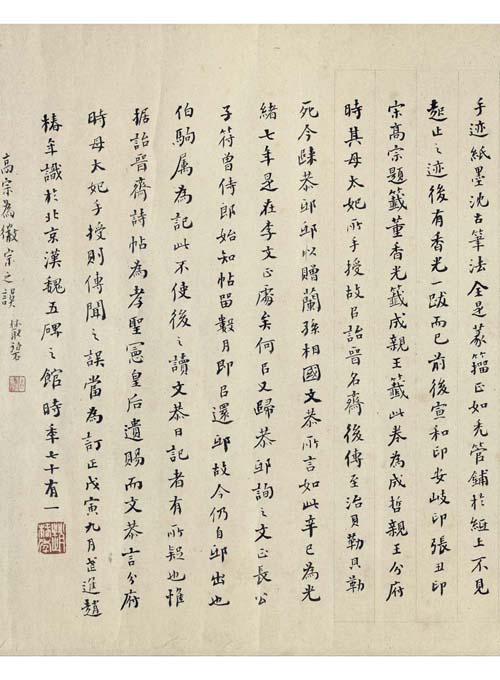 手迹紙墨沈古筆法全是篆籀正如禿管鋪於紙上不見
起止之迹後有香光一跋而已前後宣和印安岐印張丑印
宗高宗題籤董香光籤成親王籤此卷為成哲親王分府
時其母太妃所手授故以詒晉名齋後傳至治貝勒貝勒
死今歸恭邸邸以贈蘭孫相國文恭所言如此辛巳為光
緒七年是在李文正處矣何以又歸恭邸詢之文正長公
子符曾侍郎始知帖留數月即以還邸故今仍自邸出也
伯駒属為記此不使後之讀文恭日記者有所疑也惟
据詒晉齋詩帖為孝聖憲皇后遺賜而文恭言分府
時母太妃手授則傳聞之誤當為訂正戊寅九月武進趙
椿年識於北京漢魏五碑之館時年七十有一
高宗為徽宗之誤